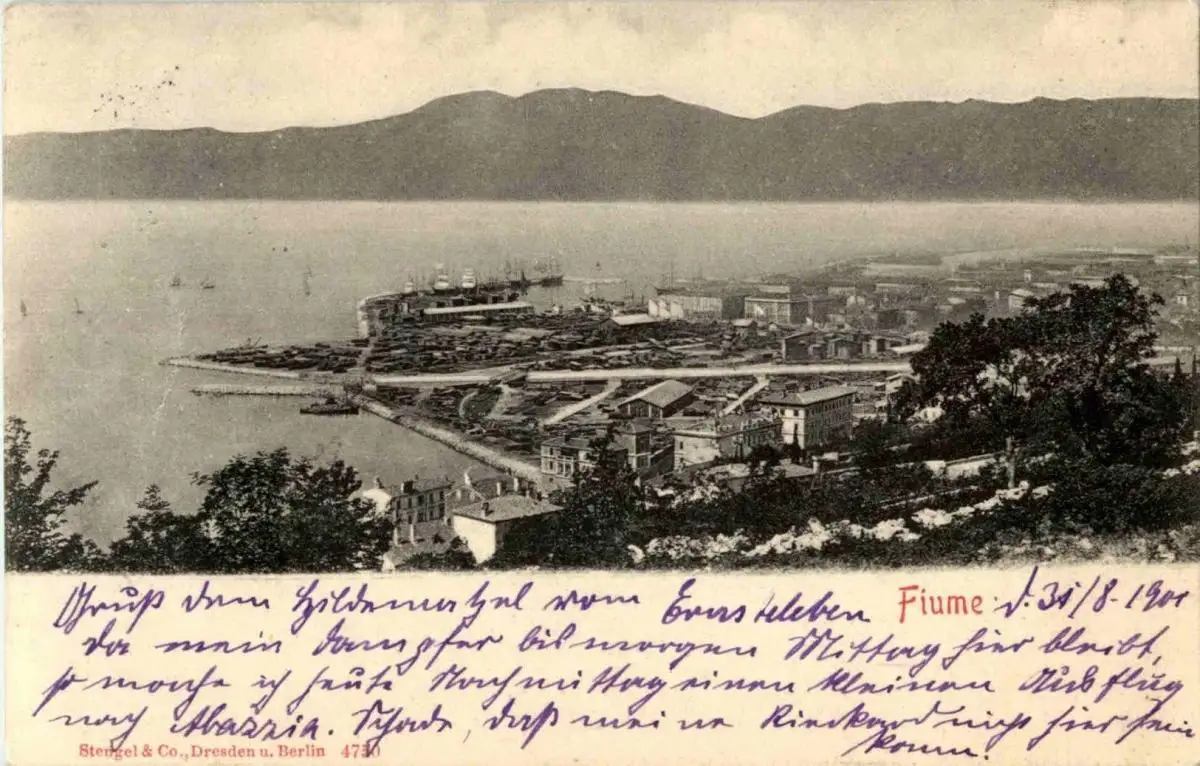 Gruß dem Hildematzel vom Ernsteleben Fiume d. 31/8. 1901
Da mein Dampfer bis morgen Mittag hier bleibt,
so mache ich heute Nachmittag einen kleinen Ausflug
nach Abazzia. Schade, daß meine nicht hier sein
kann.
Stengel & Co., Dresden u. Berlin 4750